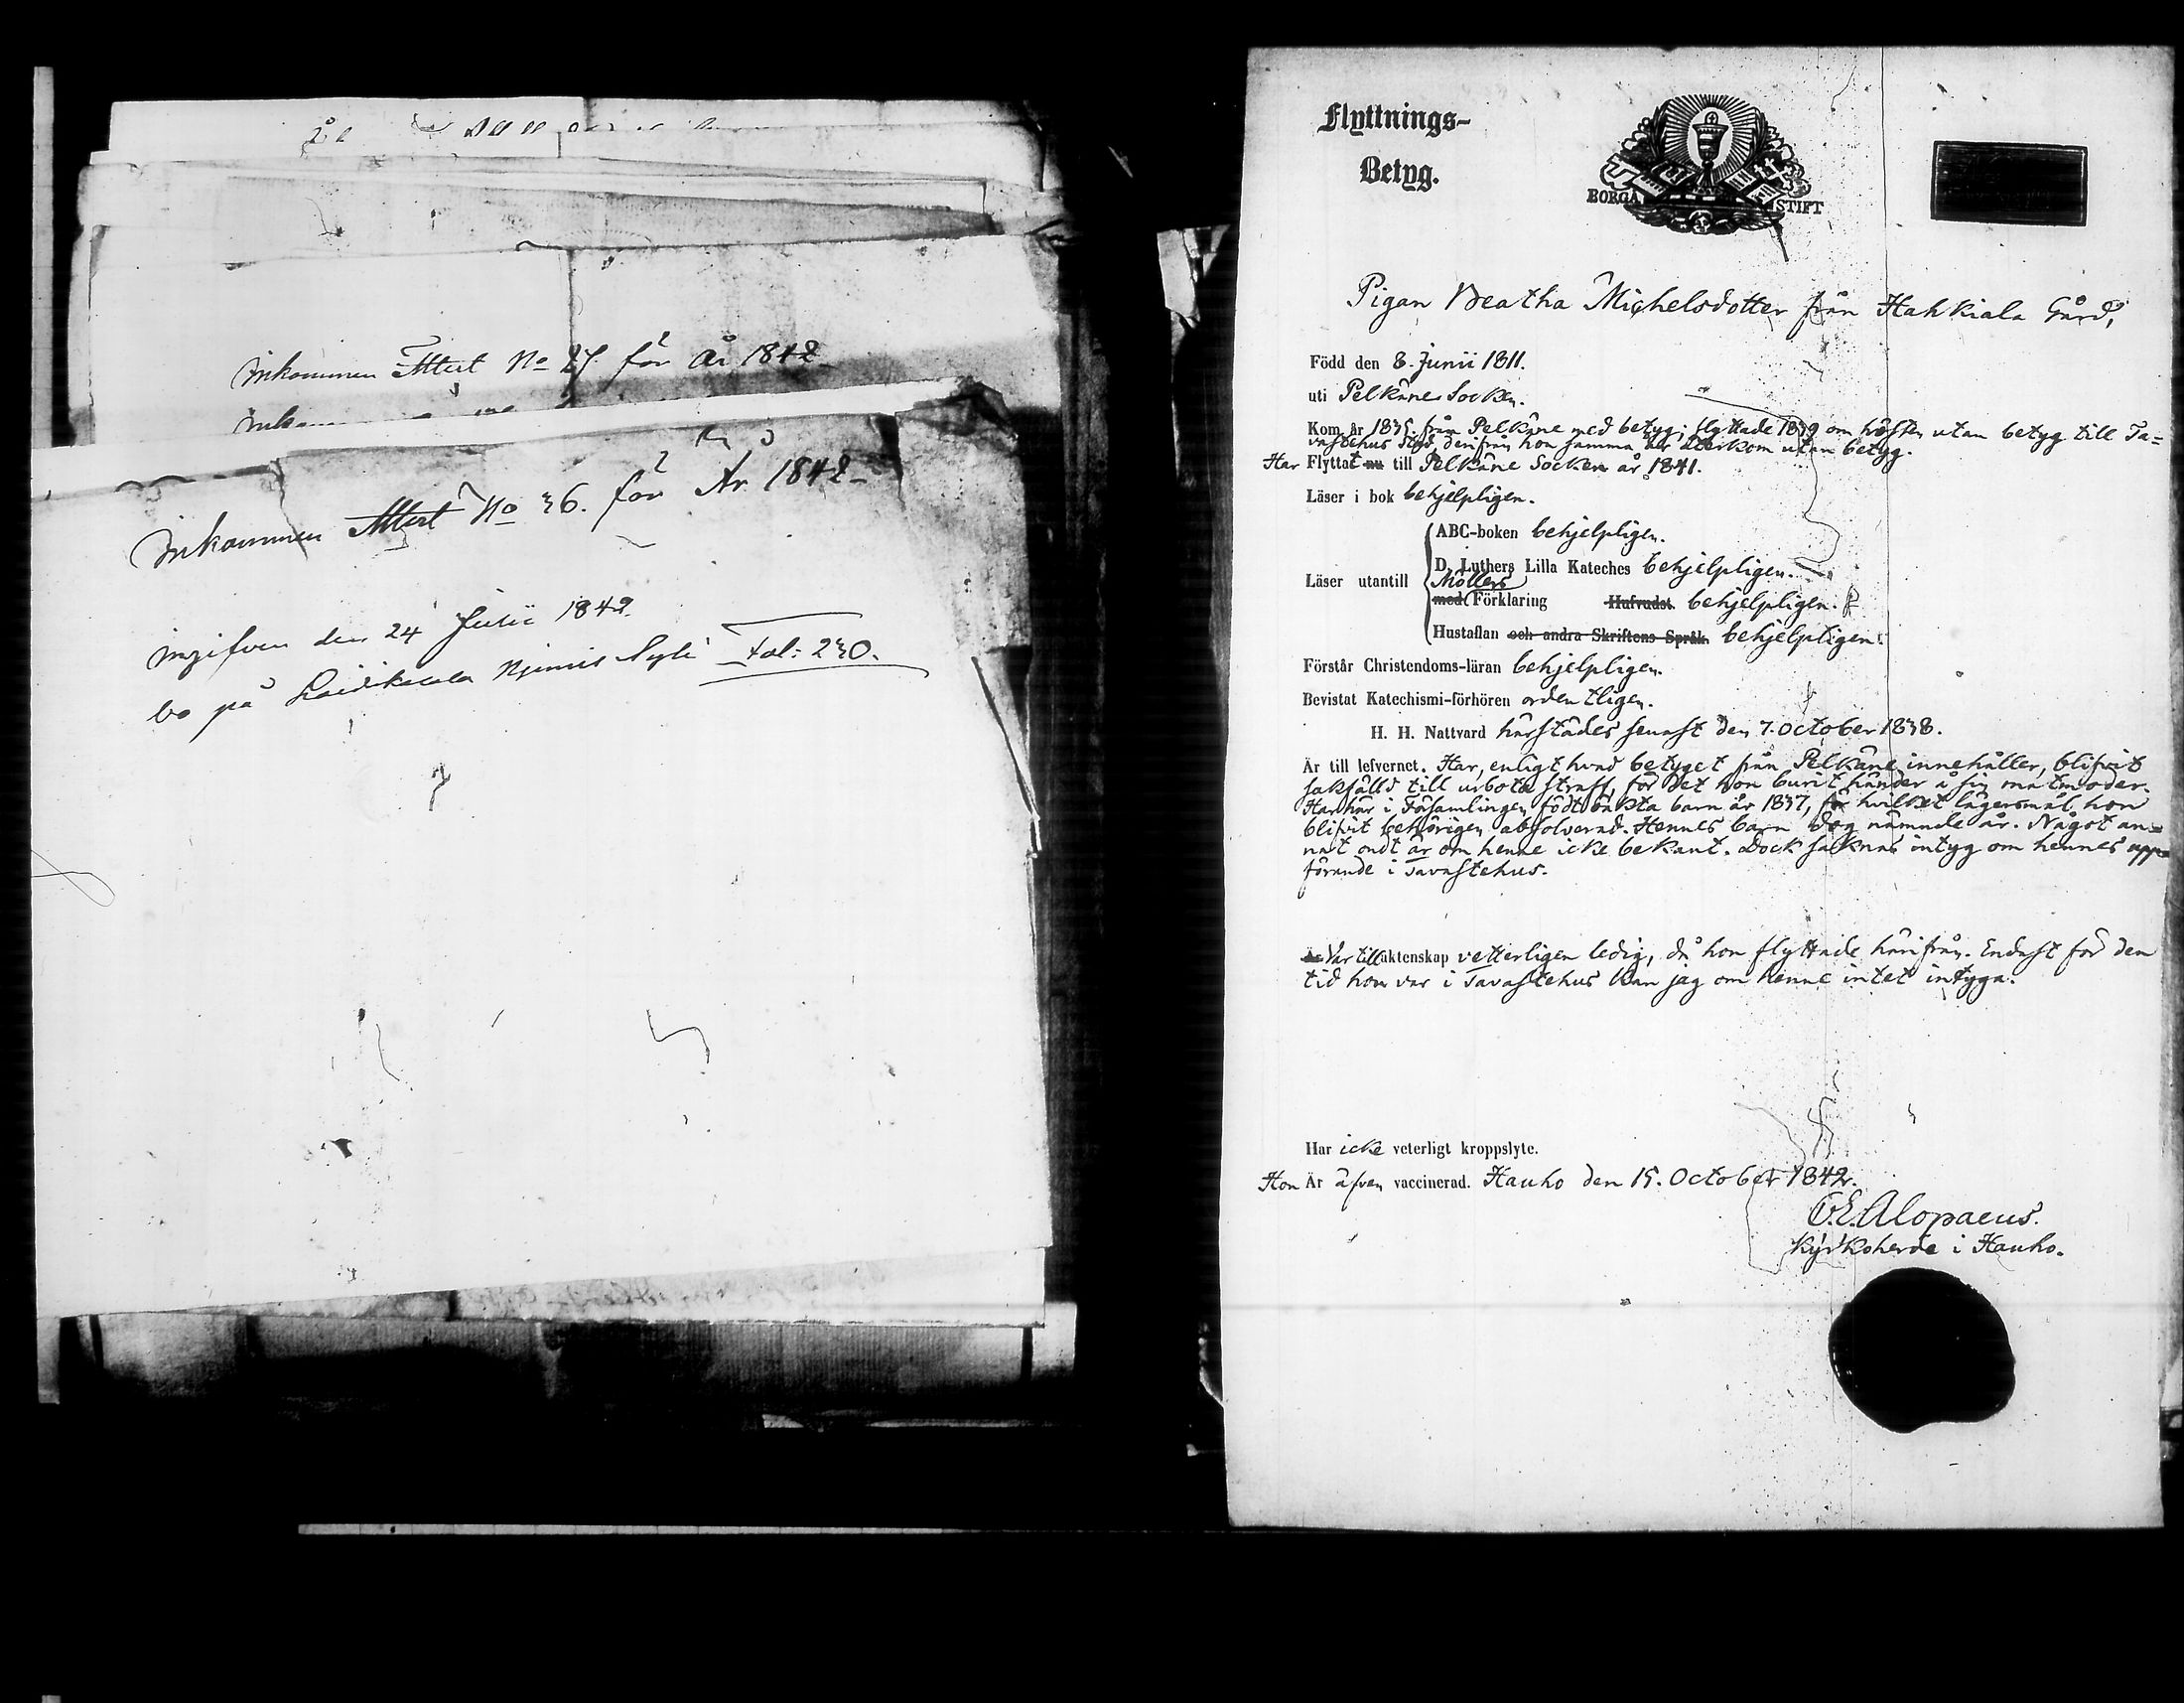 Inkommen Attest No 27. för År 1842
Inkommen Attest No 36. för År 1842
ingifven den 24 Julii 1842
bo på Fol: 230.
Flyttnings-
Betyg.
BORGÅ STIFT
Pigan Beatha Michelsdotter från Hahkiala Gård,
Född den 8. Junii 1811.
uti Pelkäne Socken.
Kom år 1835. från Pelkäne med betyg; flyttade 1839 om hösten utan betyg till Ta=
vastehus Stad, derifrån hon samma år återkom utan betyg.
Har Flyttat nu till Pelkäne Socken år 1841.
Läser i bok behjelpligen.
ABC-boken behjelpligen.
D. Luthers Lilla Kateches behjelpligen.
Läser utantill
Möllers
med Förklaring Hufvudst. behjelpligen.
Hustaflan och andra Skriftens Språk behjelpligen.
Förstår Christendoms-läran behjelpligen.
Bevistat Katechismi-förhören ordentligen.
H. H. Nattvard härstädes senast den 7. October 1838.
Är till lefvernet. Har, enligt hvad betyget från Pelkäne innehåller, blifvit
sakfälld till urbota straff, för det hon burit händer å sin matmoder.
Har här i Församlingen födt oäkta barn år 1837, för hvilket lägersmål hon
blifvit behörigen absolverad. Hennes barn dog nämnde år. Något an=
nat ondt är om henne icke bekant. Dock saknas intyg om hennes upp=
förande i Tavastehus.
Är Var till äktenskap vetterligen ledig, då hon flyttade härifrån. Endast för den
tid hon var i Tavastehus kan jag om henne intet intyga.
Har icke veterligt kroppslyte.
Hon Är äfven vaccinerad. Hauho den 15. October 1842.
Alopaeus.
Kyrkoherde i Hauho.